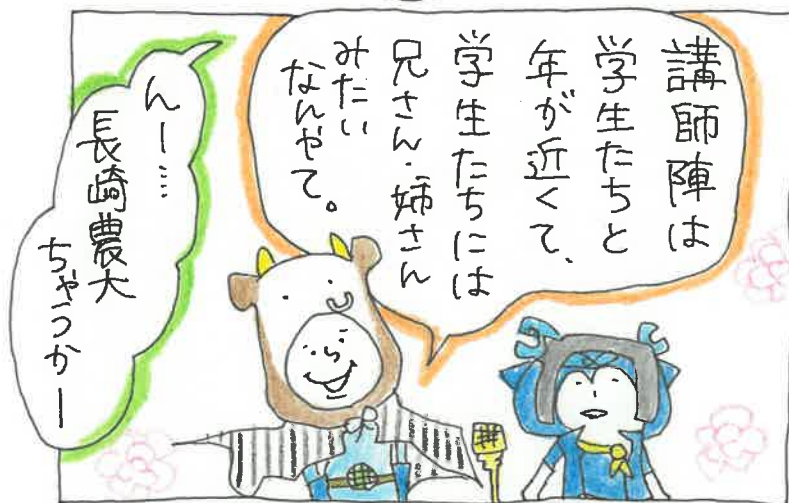 講師陣は
学生たちと
年が近くて、
学生たちには
兄さん・姉さん
みたい
なんやて。
んー…
長崎農大
ちゃうかー